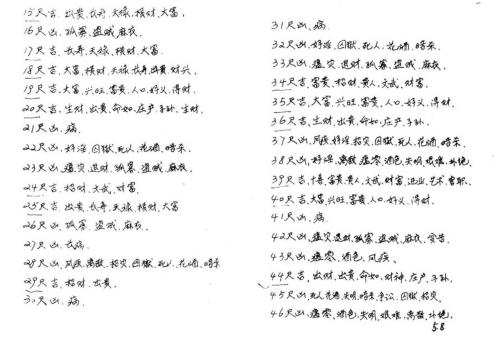 15尺吉.出贵.长寿.天禄.横财.大富.
16尺凶.孤寡.盗贼.麻衣.
17尺吉.长寿.天禄.大富.
18尺吉.大富.横财.天禄.长寿.出贵.财兴.
19尺吉.大富.兴旺.富贵.人口.好义.得财.
20尺吉.生财.出贵.命如.庄产.子孙.生财.
21尺凶.病.
22尺凶.好淫.囚狱.死人.花酒.
23尺凶.瘟灾.退财.孤寡.盗贼.麻衣.
24尺吉.招财.文武.财富.
25尺吉.出贵.长寿.天禄.横财.大富
26尺凶.孤寡.盗贼.麻衣.
27尺凶.长病.
28尺凶.风疾.离散.招灾.囚狱.死人.花酒.
29尺吉.招财.出贵.
30尺凶.病.
31尺凶.病.
32尺凶.好淫.囚狱.死人.花酒.
33尺凶.瘟灾.退财.孤寡.盗贼.麻衣.
34尺吉.富贵.招财.贵人.文武.财富.
35尺吉.大富.兴旺.富贵.人口.好义.得财.
36尺吉.生财.出贵.命如.庄产.子孙.
37尺凶.风疾.好淫.招灾.囚狱.死人.花酒.
38尺凶.好淫.离散.瘟.酒色.失明.艰难.
39尺吉.富贵.贵人.文武.财富.进业.艺术.官职.
40尺吉.大富.兴旺.富贵.人口.好义.得财.
41尺凶.病.
42尺凶.瘟灾.退财.孤寡.盗贼.麻衣.
43尺凶.瘟.酒色.风疾.
44尺吉.出财.出贵.命如.财神.庄产.子孙.
45尺凶.死人.花酒.失明.争讼.囚狱.招灾.
46尺凶.瘟.酒色.失明.艰难.离散.
58